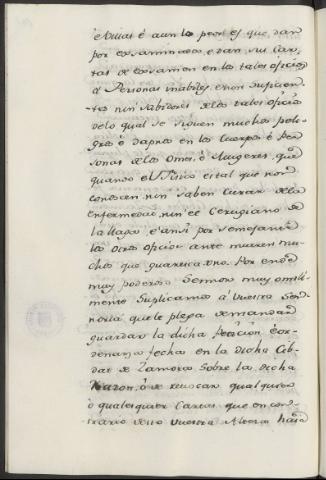 é Nuias é aun lo peor es que dan
por exsaminados, e dan sus Car,
tas de exsamen en los tales oficios
á Personas inabiles, é non suficien,
tes nin sabidores de los tales oficios
delo qual se siguen muchos peli,
gros é dapños en los Cuerpos é Per
sonas de los Omes, é Mugeres, que
quando el Fisico es tal que non
conoscan nin saben curar dela
enfermedad, nin el Cirugiano de
la llaga é ansi por semejante
los otros oficios ante mueren mu,
chos que guaresca uno. Por ende
muy poderoso Señor muy omill
mente Suplicamos á Vuestra Seño
noria que le plega de mandar
guardar la dicha Peticion é or,
denanza fecha en la dicha Cib,
dat de Zamora sobre la dicha
Razon, ó de revocar qual quiera
ó quales quier Cartas que en con,
trario dello Vuestra Alteza haia